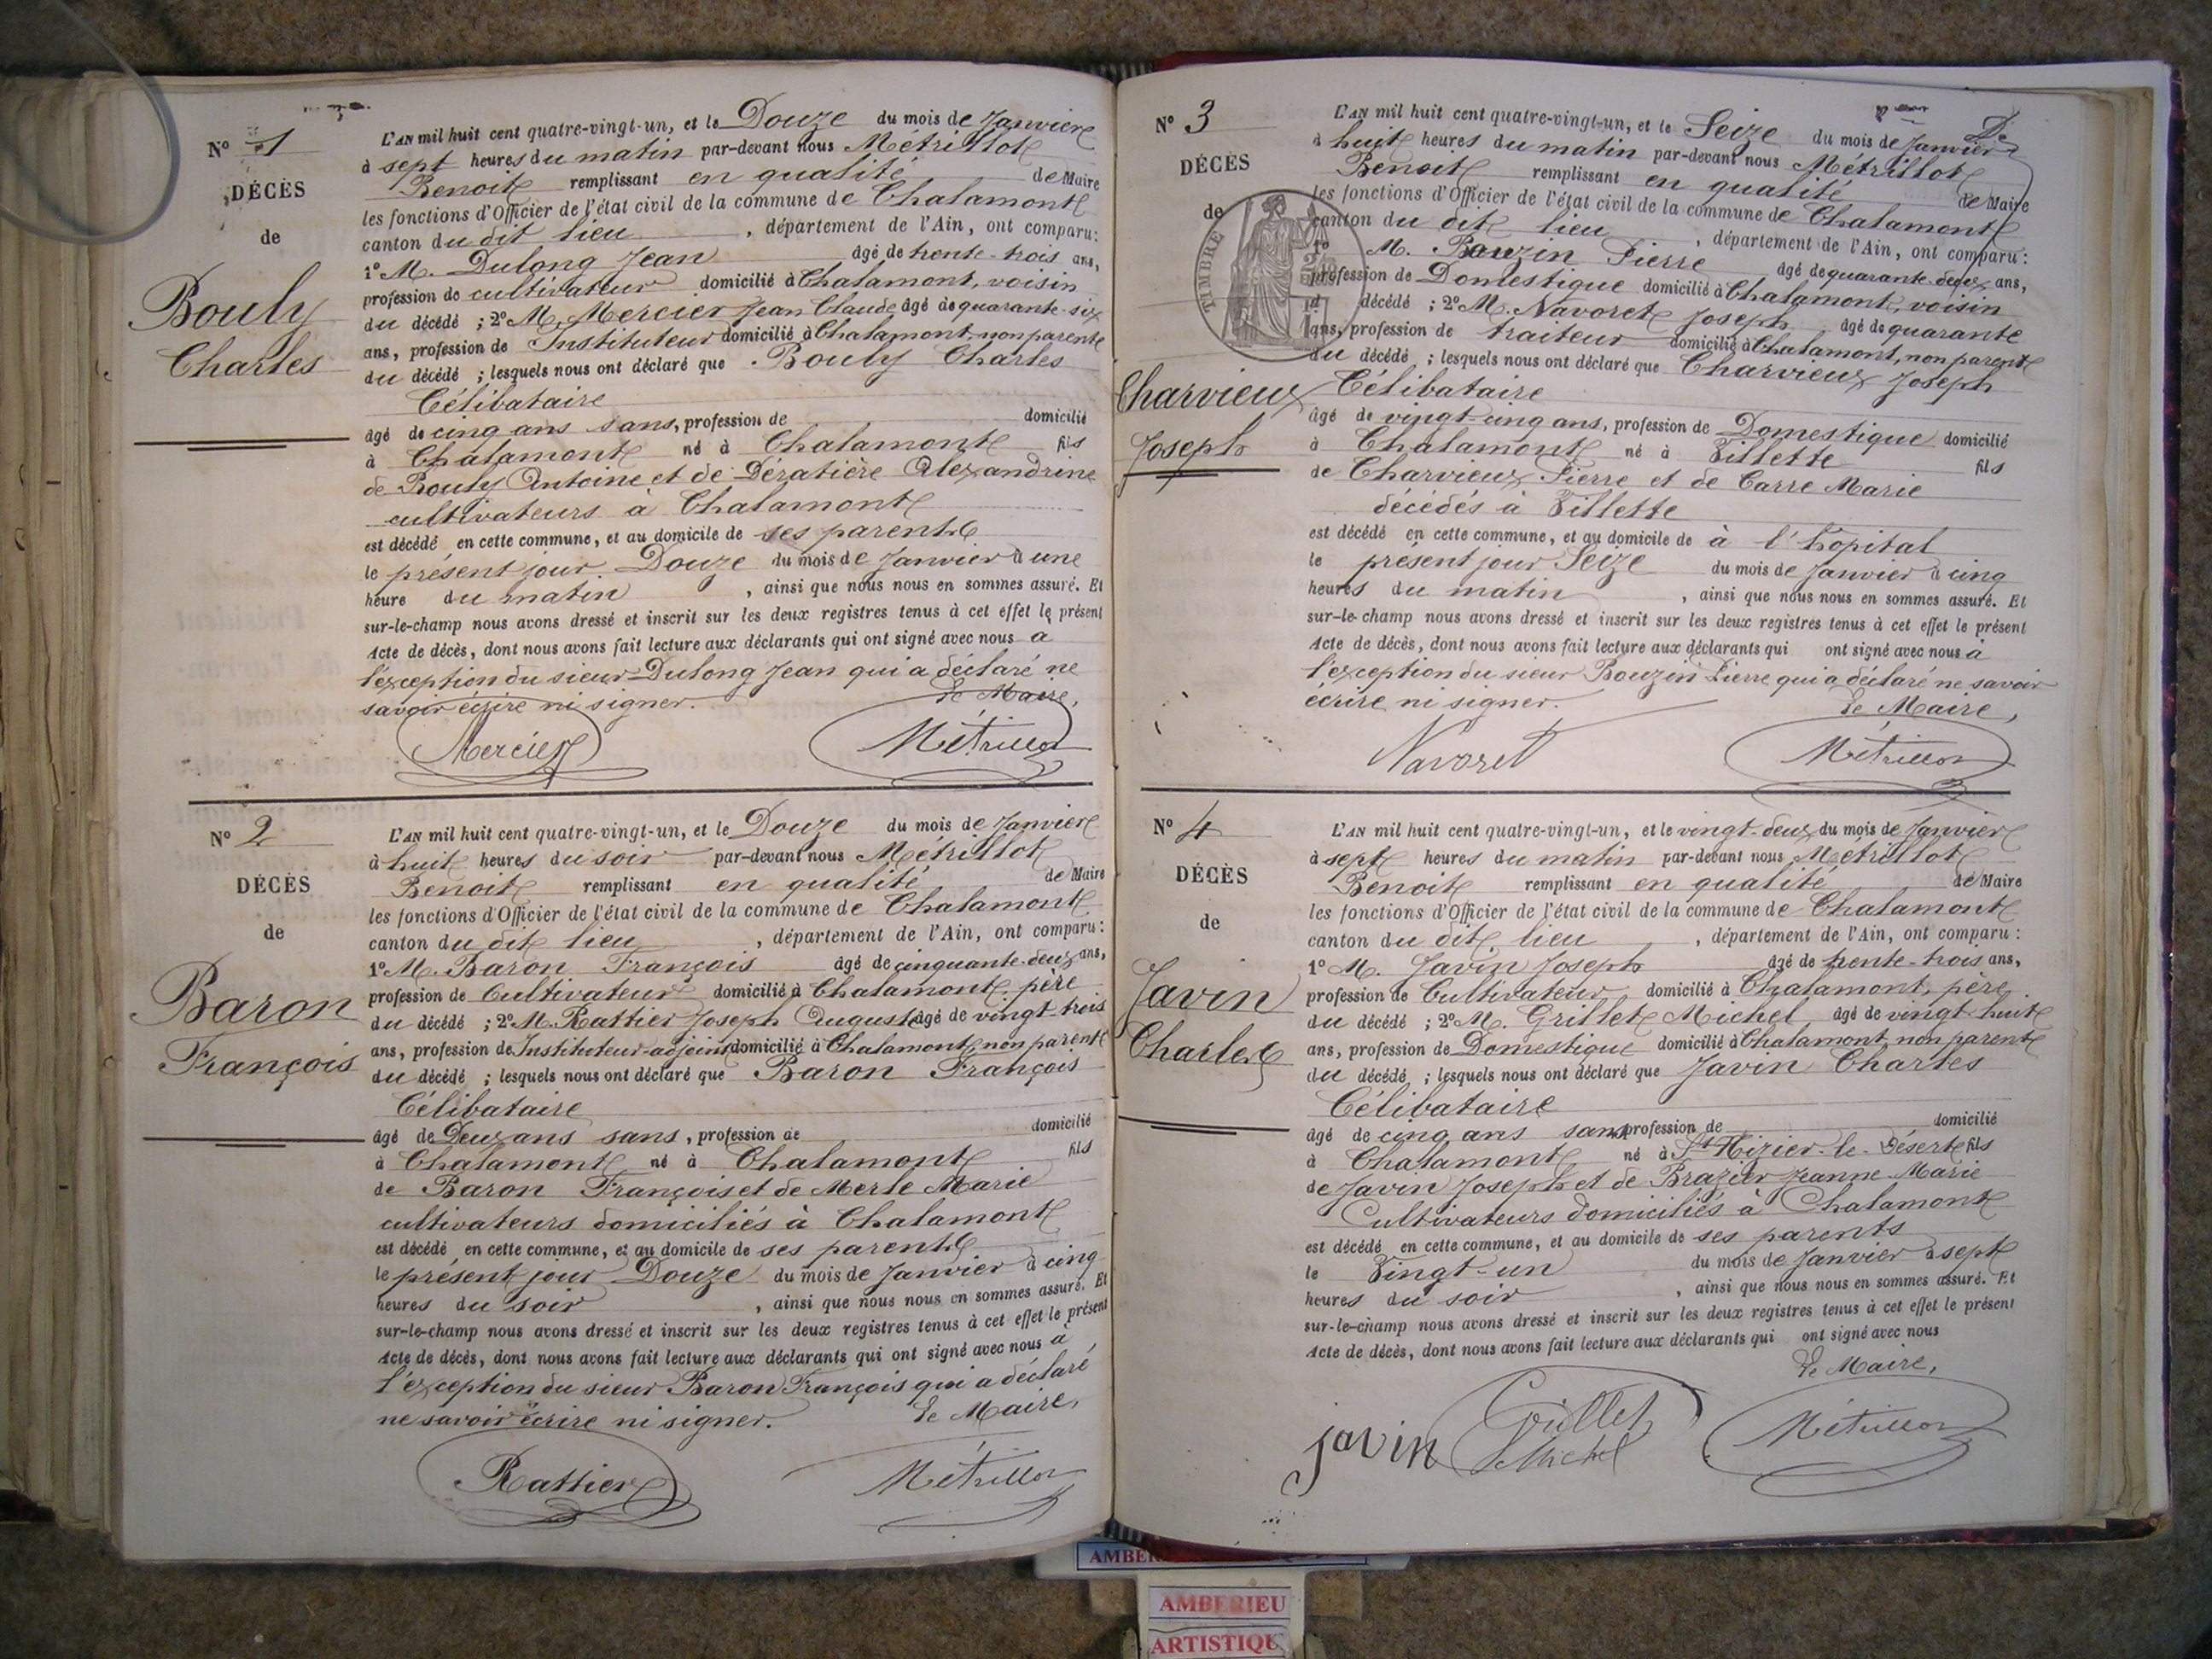 N° 1
DÉCÈS
de
Bouly
Charles
L'AN mil huit cent quatre-vingt-un, et le Douze du mois de Janvier
à sept heures du matin par-devant nous Métrillot
Benoit remplissant en qualité de Maire
les fonctions d'Officier de l'état civil de la commune de Chalamont
canton du dit lieu , département de l'Ain, ont comparu:
1° M. Dulong Jean âgé de trente-trois ans,
profession de cultivateur domicilié à Chalamont, voisin
du décédé ; 2° M. Mercier Jean Claude âgé de quarante-six
ans, profession de Instituteur domicilié à Chalamont, non parent
du décédé ; lesquels nous ont déclaré que Bouly Charles
Célibataire
âgé de cinq ans sans, profession de domicilié
à Chalamont né à Chalamont fils
de Bouly Antoine et de Dératière Alexandrine
cultivateurs à Chalamont
est décédé en cette commune, et au domicile de ses parents
le présent jour Douze du mois de Janvier à une
heure du matin , ainsi que nous nous en sommes assuré. Et
sur-le-champ nous avons dressé et inscrit sur les deux registres tenus à cet effet le présent
Acte de décès, dont nous avons fait lecture aux déclarants qui ont signé avec nous à
l'exception du sieur Dulong Jean qui a déclaré ne
savoir écrire ni signer. Le Maire,
Mercier Métrillot
N° 2
DÉCÈS
de
Baron
François
L'AN mil huit cent quatre-vingt-un, et le Douze du mois de Janvier
à huit heures du soir par-devant nous Métrillot
Benoit remplissant en qualité de Maire
les fonctions d'Officier de l'état civil de la commune de Chalamont
canton du dit lieu , département de l'Ain, ont comparu:
1° M. Baron François âgé de cinquante-deux ans,
profession de Cultivateur domicilié à Chalamont, père
du décédé ; 2° M. Rattier Joseph Auguste âgé de vingt trois
ans, profession de Instituteur-adjoint domicilié à Chalamont, non parent
du décédé ; lesquels nous ont déclaré que Baron François
Célibataire
âgé de Deux ans sans, profession de domicilié
à Chalamont né à Chalamont fils
de Baron François et de Merle Marie
cultivateurs domiciliés à Chalamont
est décédé en cette commune, et au domicile de ses parents
le présent jour Douze du mois de Janvier à cinq
heures du soir , ainsi que nous nous en sommes assuré. Et
sur-le-champ nous avons dressé et inscrit sur les deux registres tenus à cet effet le présent
Acte de décès, dont nous avons fait lecture aux déclarants qui ont signé avec nous à
l'exception du sieur Baron François qui a déclaré
ne savoir écrire ni signer. Le Maire,
Rattier Métrillot
N° 3
DÉCÈS
de
TIMBRE
Charvieux
Joseph
L'AN mil huit cent quatre-vingt-un, et le Seize du mois de Janvier
à huit heures du matin par-devant nous Métrillot
Benoit remplissant en qualité de Maire
les fonctions d'Officier de l'état civil de la commune de Chalamont
canton du dit lieu , département de l'Ain, ont comparu:
1° M. Bouzin Pierre âgé de quarante-deux ans,
profession de Domestique domicilié à Chalamont, voisin
d décédé ; 2° M. Navoret Joseph âgé de quarante
ans, profession de traiteur domicilié à Chalamont, non parent
du décédé ; lesquels nous ont déclaré que Charvieux Joseph
Célibataire
âgé de vingt-cinq ans, profession de Domestique domicilié
à Chalamont né à Villette fils
de Charvieux Pierre et de Carre Marie
décédés à Villette
est décédé en cette commune, et au domicile de à l'hôpital
le présent jour Seize du mois de Janvier à cinq
heures du matin , ainsi que nous nous en sommes assuré. Et
sur-le-champ nous avons dressé et inscrit sur les deux registres tenus à cet effet le présent
Acte de décès, dont nous avons fait lecture aux déclarants qui ont signé avec nous à
l'exception du sieur Bouzin Pierre qui a déclaré ne savoir
écrire ni signer. Le Maire,
Navoret Métrillot
N° 4
DÉCÈS
de
Javin
Charles
L'AN mil huit cent quatre-vingt-un, et le vingt-deux du mois de Janvier
à sept heures du matin par-devant nous Métrillot
Benoit remplissant en qualité de Maire
les fonctions d'Officier de l'état civil de la commune de Chalamont
canton du dit lieu , département de l'Ain, ont comparu:
1° M. Javin Joseph âgé de trente-trois ans,
profession de Cultivateur domicilié à Chalamont, père
du décédé ; 2° M. Grillet Michel âgé de vingt-huit
ans, profession de Domestique domicilié à Chalamont, non parent
du décédé ; lesquels nous ont déclaré que Javin Charles
Célibataire
âgé de cinq ans sans profession de domicilié
à Chalamont né à St Nizier-le-Désert fils
de Javin Joseph et de Brazier Jeanne-Marie
Cultivateurs domiciliés à Chalamont
est décédé en cette commune, et au domicile de ses parents
le Vingt-un du mois de Janvier à sept
heures du soir , ainsi que nous nous en sommes assuré. Et
sur-le-champ nous avons dressé et inscrit sur les deux registres tenus à cet effet le présent
Acte de décès, dont nous avons fait lecture aux déclarants qui ont signé avec nous
Le Maire,
javin Grillet Michel Métrillot
AMBERIEU
ARTISTIQU